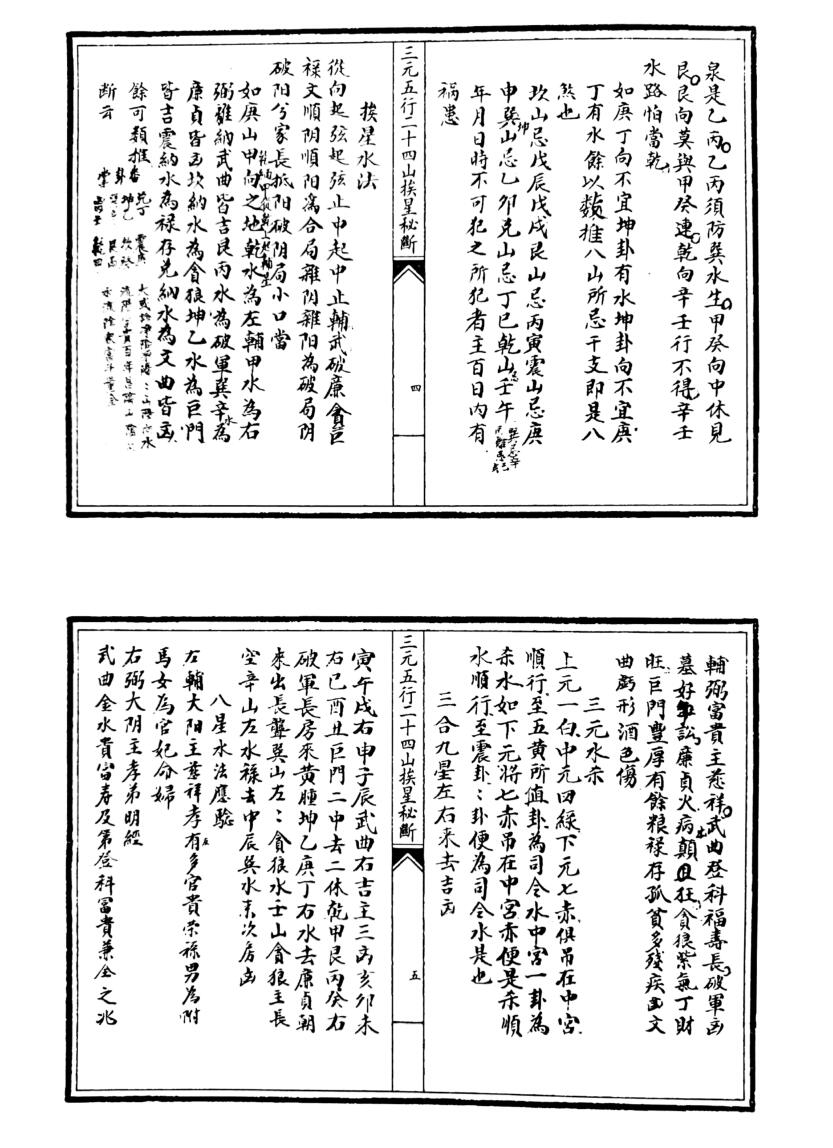 泉是乙丙乙丙須防巽水生甲癸向中休見
艮艮向莫與甲癸連乾向辛壬行不得辛壬
水路怕當乾
如庚丁向不宜坤卦有水坤卦向不宜庚
丁有水餘以類推八山所忌干支即是八
煞也
坎山忌戊辰戊戌艮山忌丙寅震山忌庚
申巽山忌乙卯兌山忌丁巳乾山壬午
年月日時不可犯之所犯者主百日內有
禍患
三元五行二十四山挨星秘斷
四
挨星水法
從向起弦起弦止中起中止輔武破廉貪巨
祿文順阴順阳為合局雜阴雜阳為破局阴
破阳兮家長抵阳破阴局小口當
如庚山甲向之地乾水為左輔甲水為右
弼離納武曲皆吉艮丙水為破軍巽辛水為
廉貞皆凶坎納水為貪狼坤乙水為巨門
皆吉震納水為祿存兌納水為文曲皆凶
餘可類推
断云
輔弼富貴主慈祥武曲登科福壽長破軍凶
墓好爭訟廉貞火病顛且狂貪狼紫氣丁財
旺巨門豐厚有餘粮祿存孤貧多殘疾凶文
曲虧形酒色傷
三元水杀
上元一白中元四綠下元七赤俱吊在中宮
順行至五黄所值卦為司令水中宮一卦為
杀水如下元將七赤吊在中宮赤便是杀順
水順行至震卦:卦便為司令水是也
三合九星左右来去吉凶
三元五行二十四山挨星秘斷
五
寅午戌右申子辰武曲右吉主三凶亥卯未
右巳酉丑巨門二中去二休乾甲艮丙癸右
破軍長房來黄腫坤乙庚丁右水去廉貞朝
來出長聾巽山左:貪狼水壬山貪狼主長
空辛山左水祿去中辰巽水来次房凶
八星水法應驗
左輔大阳主慈祥孝有多官貴榮祿男為附
馬女為宮妃命婦
右弼大阴主孝弟明經
武曲金水貴富寿及第登科冨貴兼全之兆